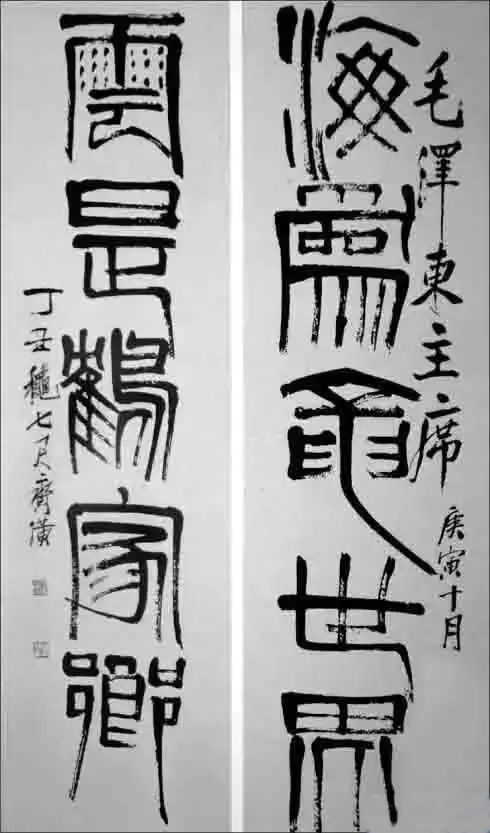 毛澤東主席 庚寅十月
海爲龍世界
雲是鶴家鄉
丁丑穐七月齊璜